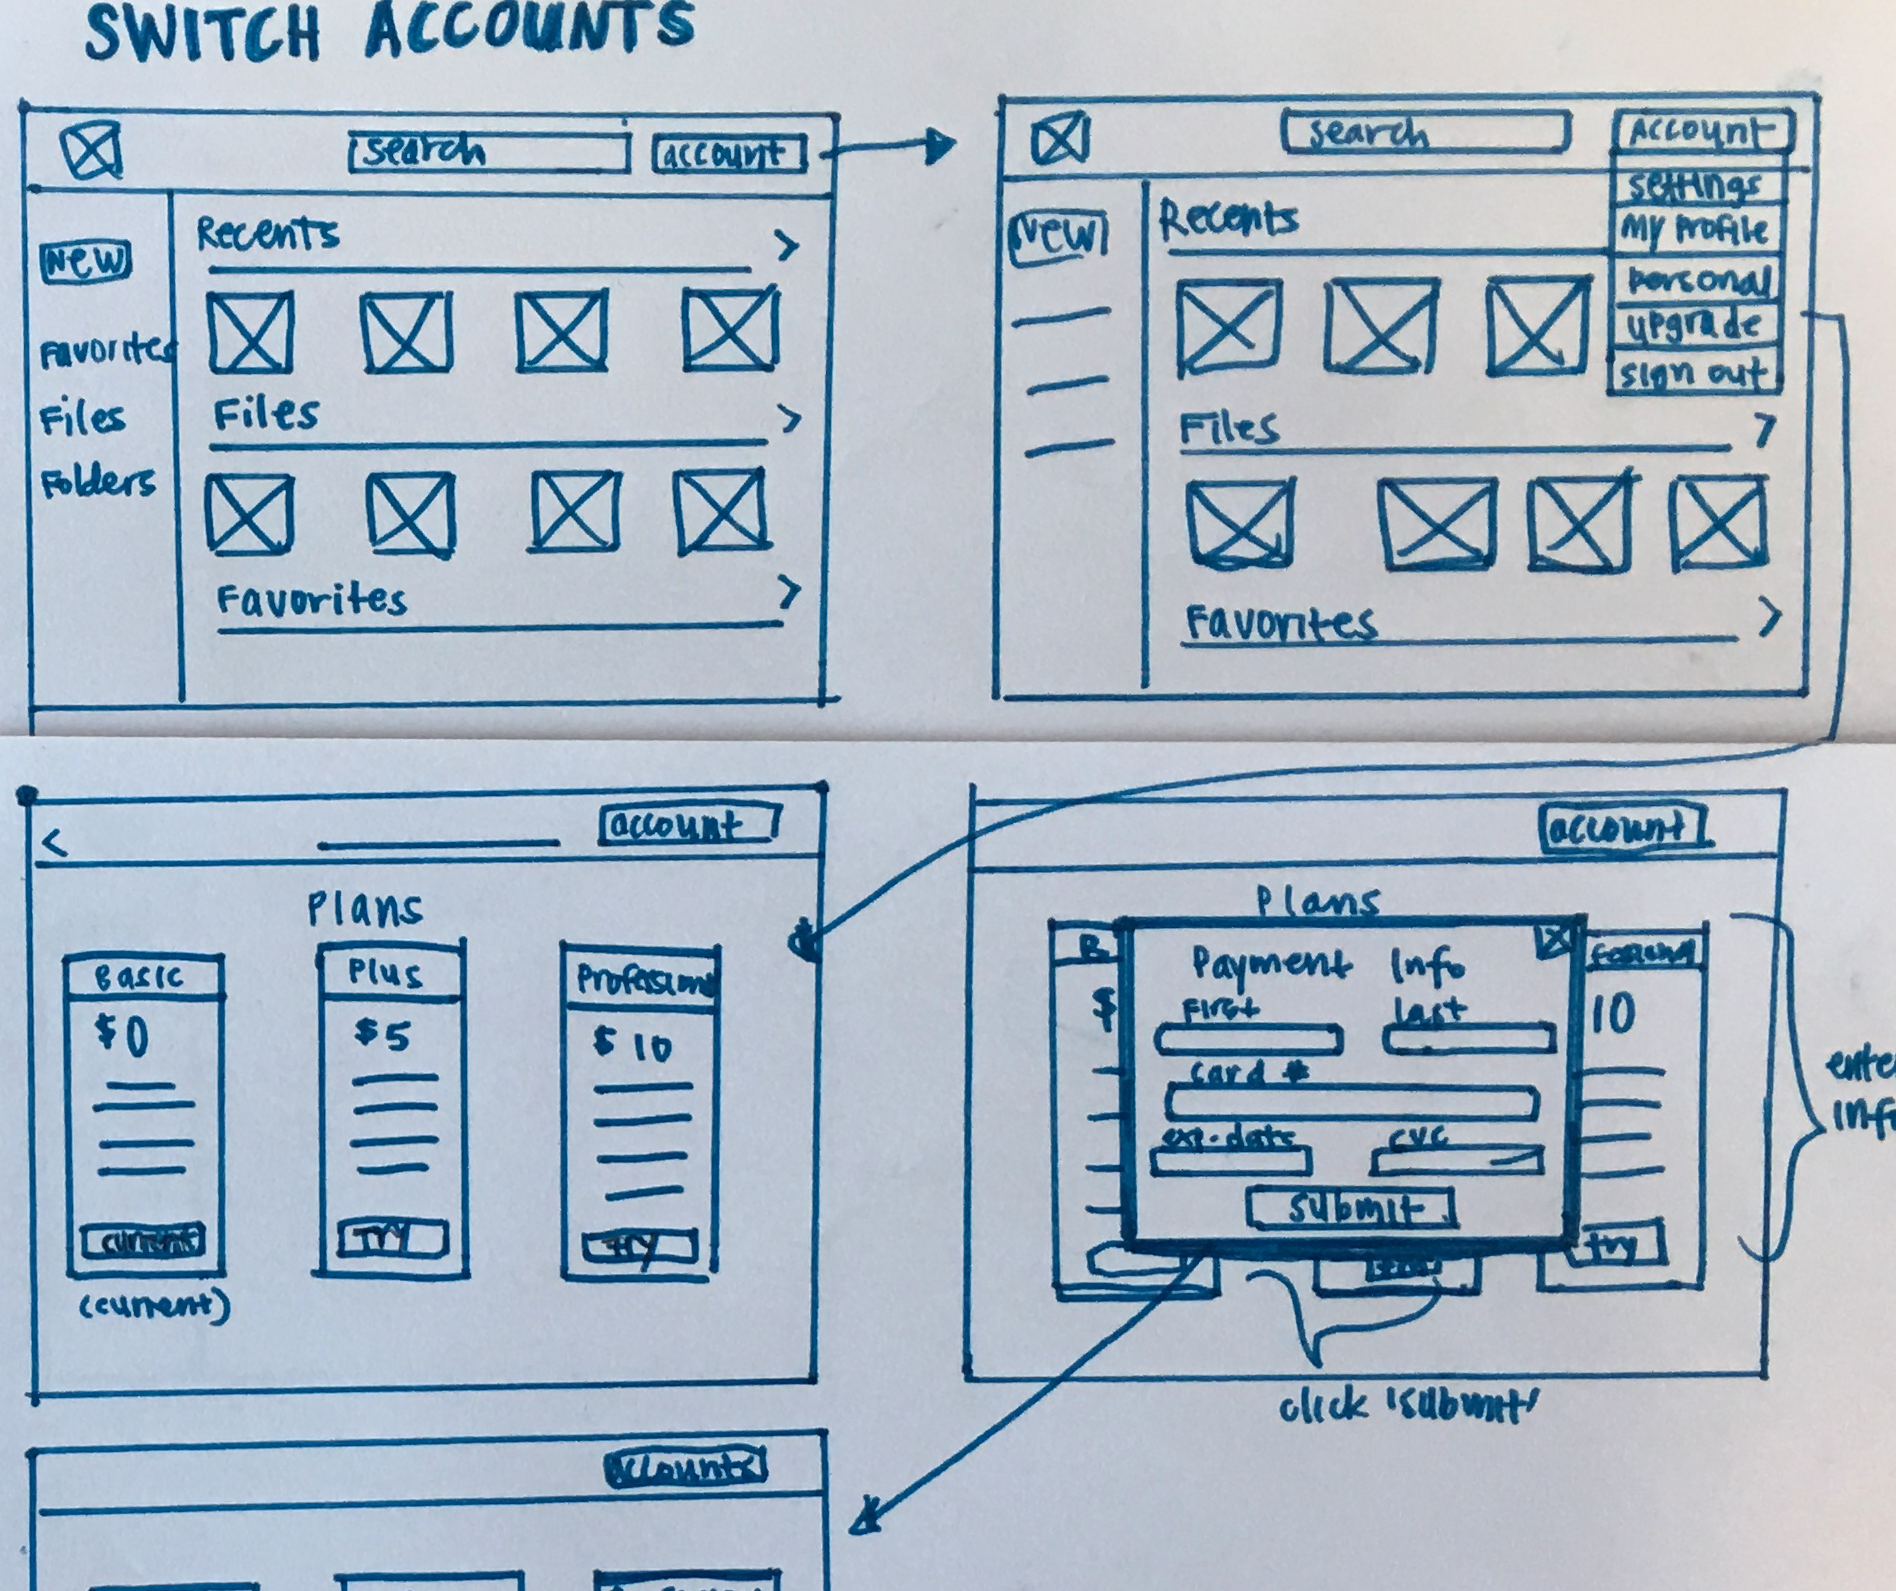 SWITCH ACCOUNTS
search
account
New
Favorites
Files
Folders
Recents
>
Files
>
Favorites
>
search
Account
settings
My Profile
personal
upgrade
sign out
New
Recents
Files
>
Favorites
>
<
account
Plans
Basic
$0
current
(current)
Plus
$5
TRY
Professional
$10
try
account
Plans
B
$
Payment Info
First
last
card #
exp. date
cvc
submit
10
try
enter
info
click 'submit'
accounts